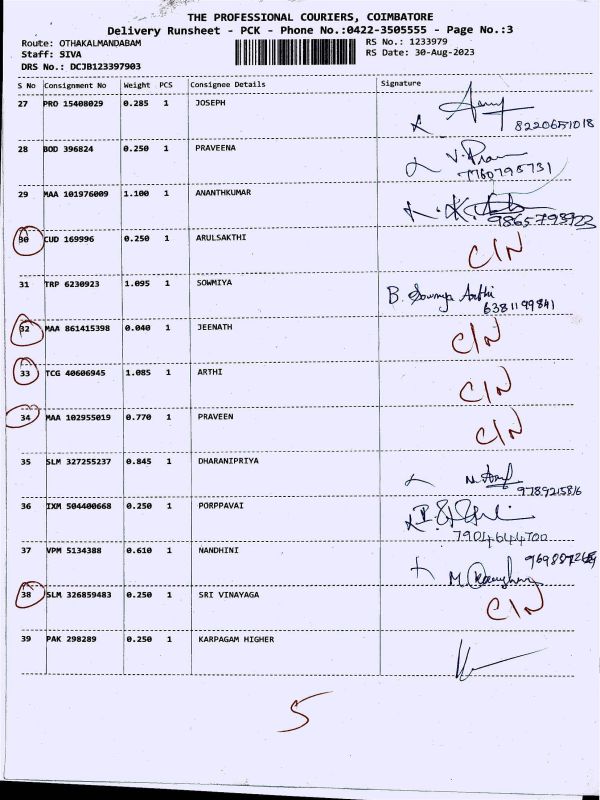 THE PROFESSIONAL COURIERS, COIMBATORE
Delivery Runsheet - PCK - Phone No.:0422-3505555 - Page No.:3
Route: OTHAKALMANDABAM RS No.: 1233979
Staff: SIVA RS Date: 30-Aug-2023
DRS No.: DCJB123397903
S No Consignment No Weight PCS Consignee Details Signature
27 PRO 15408029 0.285 1 JOSEPH
8220651018
28 BOD 396824 0.250 1 PRAVEENA
29 MAA 101976009 1.100 1 ANANTHKUMAR
30 CUD 169996 0.250 1 ARULSAKTHI C/N
31 TRP 6230923 1.095 1 SOWMIYA B. Sowmya Aarthi
6381199841
32 MAA 861415398 0.040 1 JEENATH C/N
33 TCG 40606945 1.085 1 ARTHI C/N
34 MAA 102955019 0.770 1 PRAVEEN C/N
35 SLM 327255237 0.845 1 DHARANIPRIYA
9789215816
36 IXM 504400668 0.250 1 PORPPAVAI
7904644700
37 VPM 5134388 0.610 1 NANDHINI
38 SLM 326859483 0.250 1 SRI VINAYAGA C/N
39 PAK 298289 0.250 1 KARPAGAM HIGHER
5